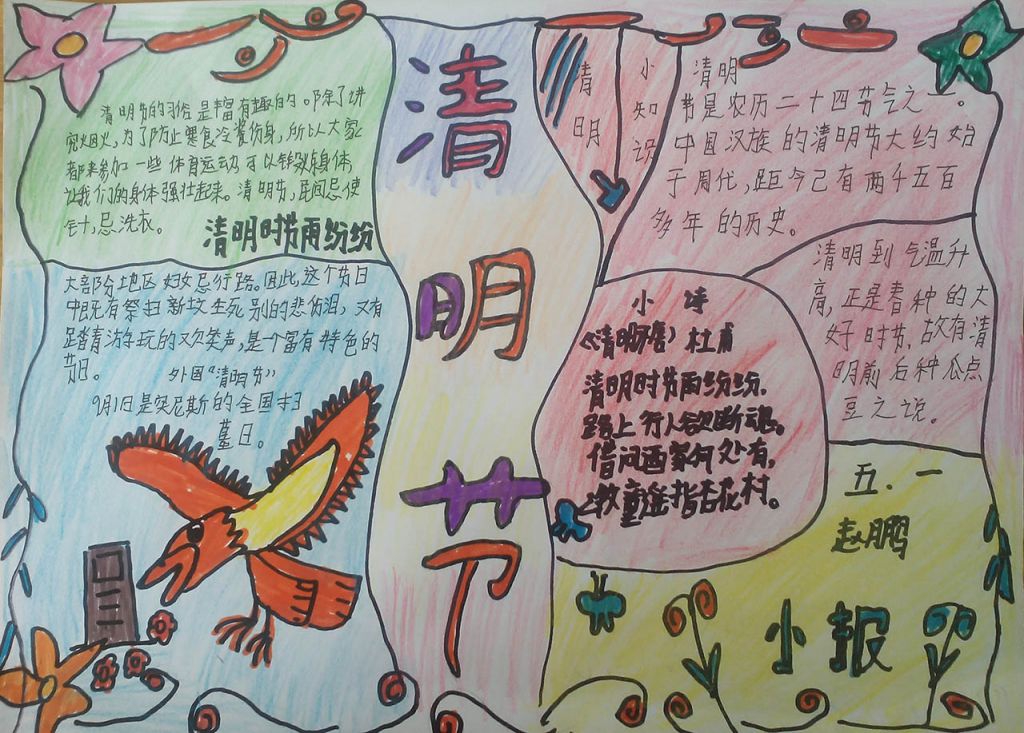 清明节的习俗是丰富有趣的。除了讲
究禁火,为了防止寒食冷餐伤身,所以大家
都来参加一些体育运动可以锻炼身体,
让我们的身体强壮起来。清明节,民间忌使
针,忌洗衣。
清明时节雨纷纷
大部份地区妇女忌行路。因此,这个节日
中既有祭扫新坟生死别的悲伤泪,又有
踏青游玩的欢笑声,是个富有特色的
节日。
外国“清明节”
9月1日是突尼斯的全国扫
墓日。
清
明
节
清明
小知识
清明
节是农历二十四节气之一。
中国汉族的清明节大约始
于周代,距今已有两千五百
多年的历史。
清明到气温升
高,正是春种的大
好时节,故有清
明前后种瓜点
豆之说。
小诗
杜甫
清明时节雨纷纷,
路上行人欲断魂。
借问酒家何处有,
牧童遥指杏花村。
五.一
赵鹏
小报